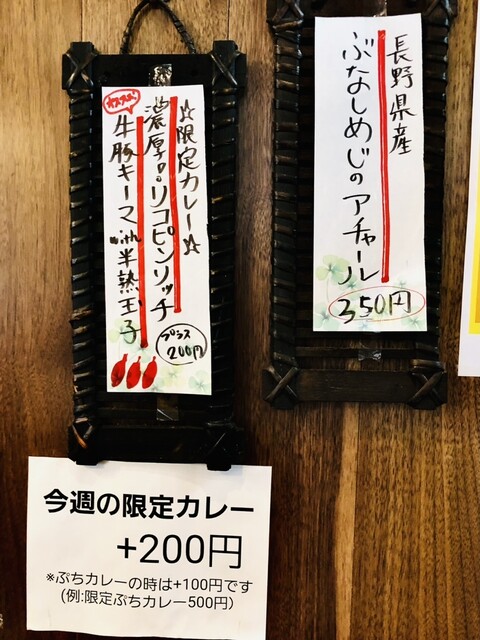 長野県産
ぶなしめじのアチャール
350円
オススメ!
☆限定カレー☆
濃厚!!リコピンリッチ
牛豚キーマwith半熟玉子
プラス
200円
今週の限定カレー
+200円
※ぷちカレーの時は+100円です
(例:限定ぷちカレー500円)